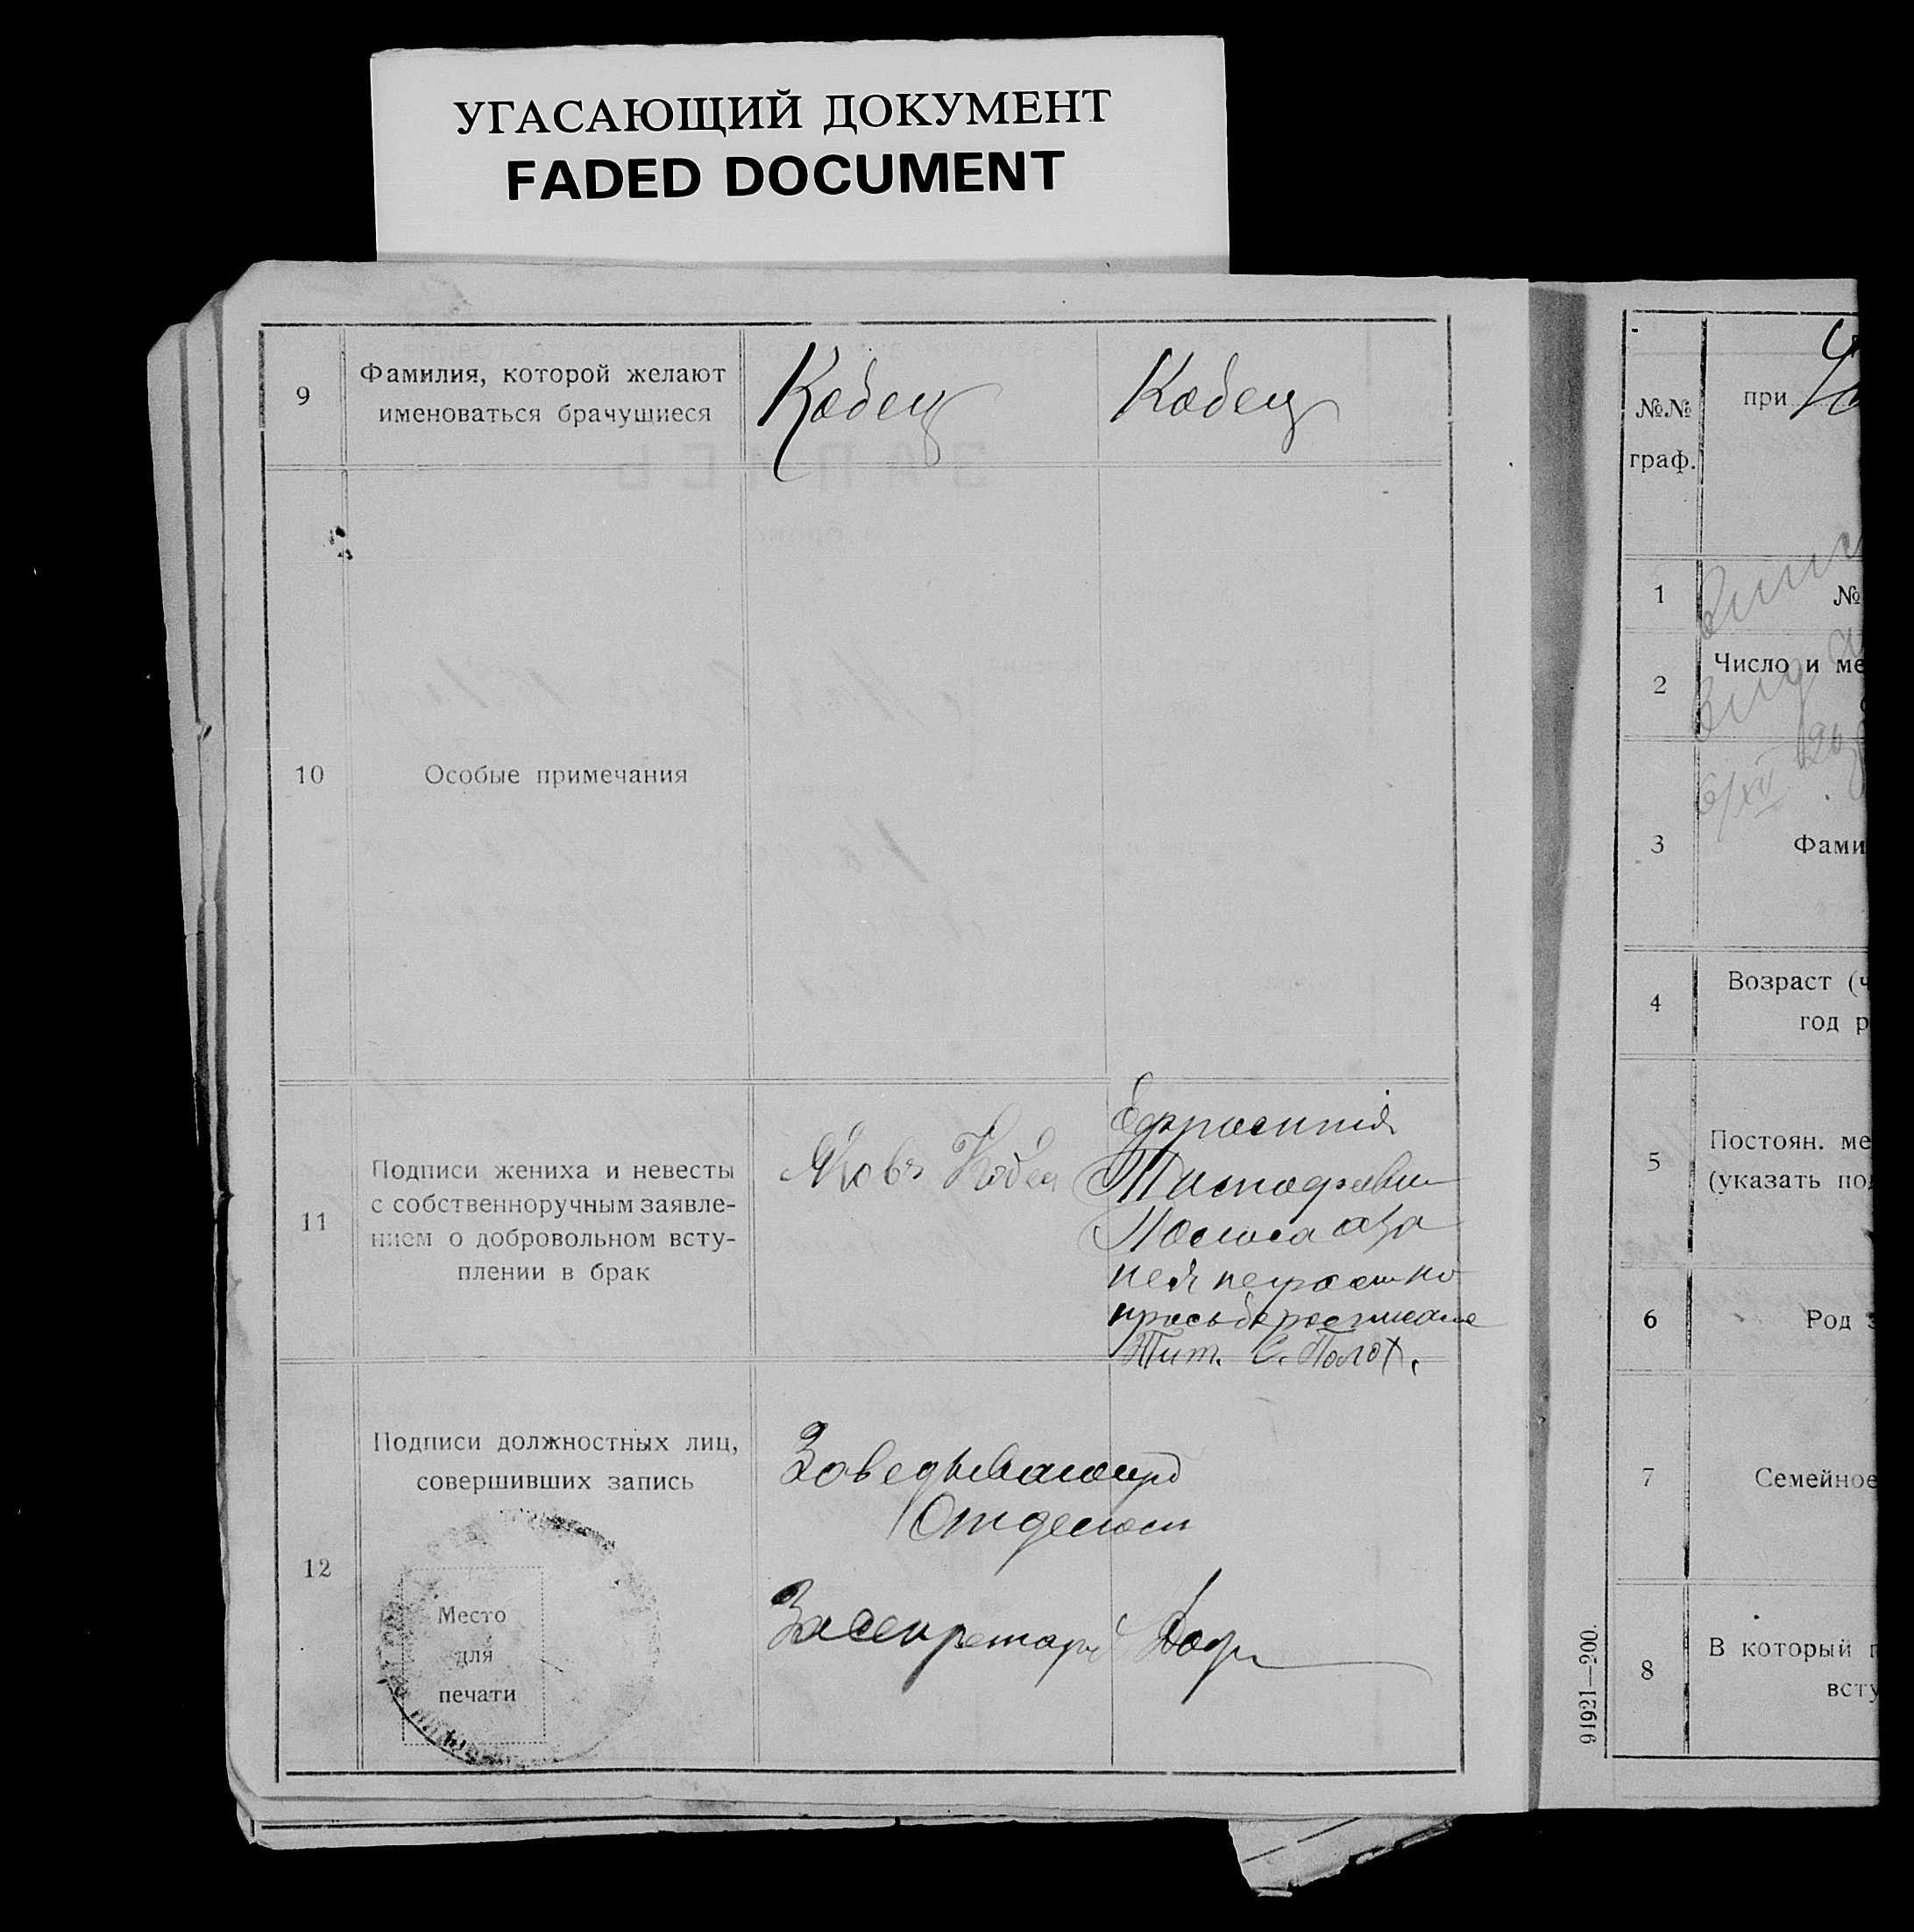 УГАСАЮЩИЙ ДОКУМЕНТ
FADED DOCUMENT
9
Фамилия, которой желают
именоваться брачущиеся
Кобец
Кобец
10
Особые примечания
11
Подписи жениха и невесты
с собственноручным заявле-
нием о добровольном всту-
плении в брак
Яковъ Кобец
Ефросинія
за
неграмотна по
просьбе
Тит. С.
12
Подписи должностных лиц,
совершивших запись
Место
для
печати
Заведывающий
Отделом
За секретаря
№№
граф.
при
1
№
2
Число и ме
6/XII
3
Фами
4
Возраст (ч
год р
5
Постоян. ме
(указать по
6
Род з
7
Семейное
8
В который
всту
91921—200.